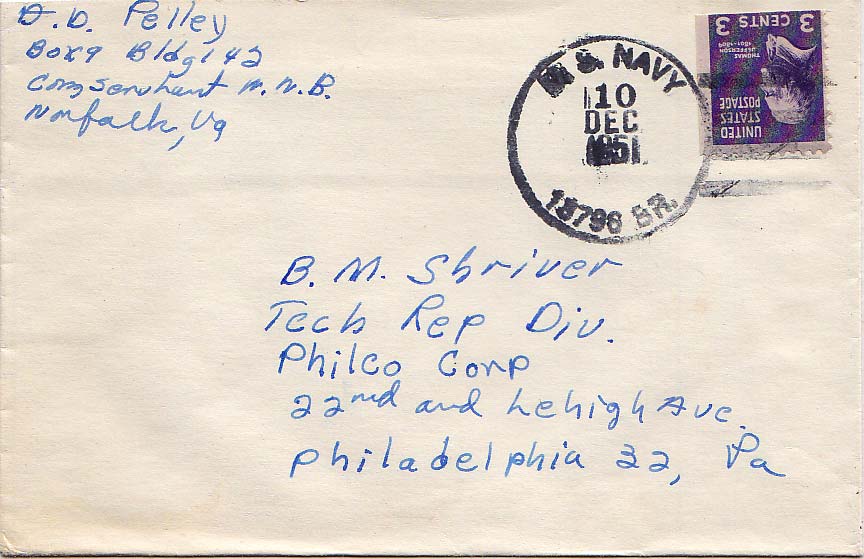 D.D. Pelley
Box 9 Bldg 142
ComServLant M.N.B.
Norfolk, Va
U.S. NAVY
10
DEC
1951
13796 BR.
3 CENTS 3
THOMAS
JEFFERSON
1801-1809
UNITED
STATES
POSTAGE
B. M. Shriver
Tech Rep Div.
Philco Corp
22nd and Lehigh Ave.
Philadelphia 32, Pa